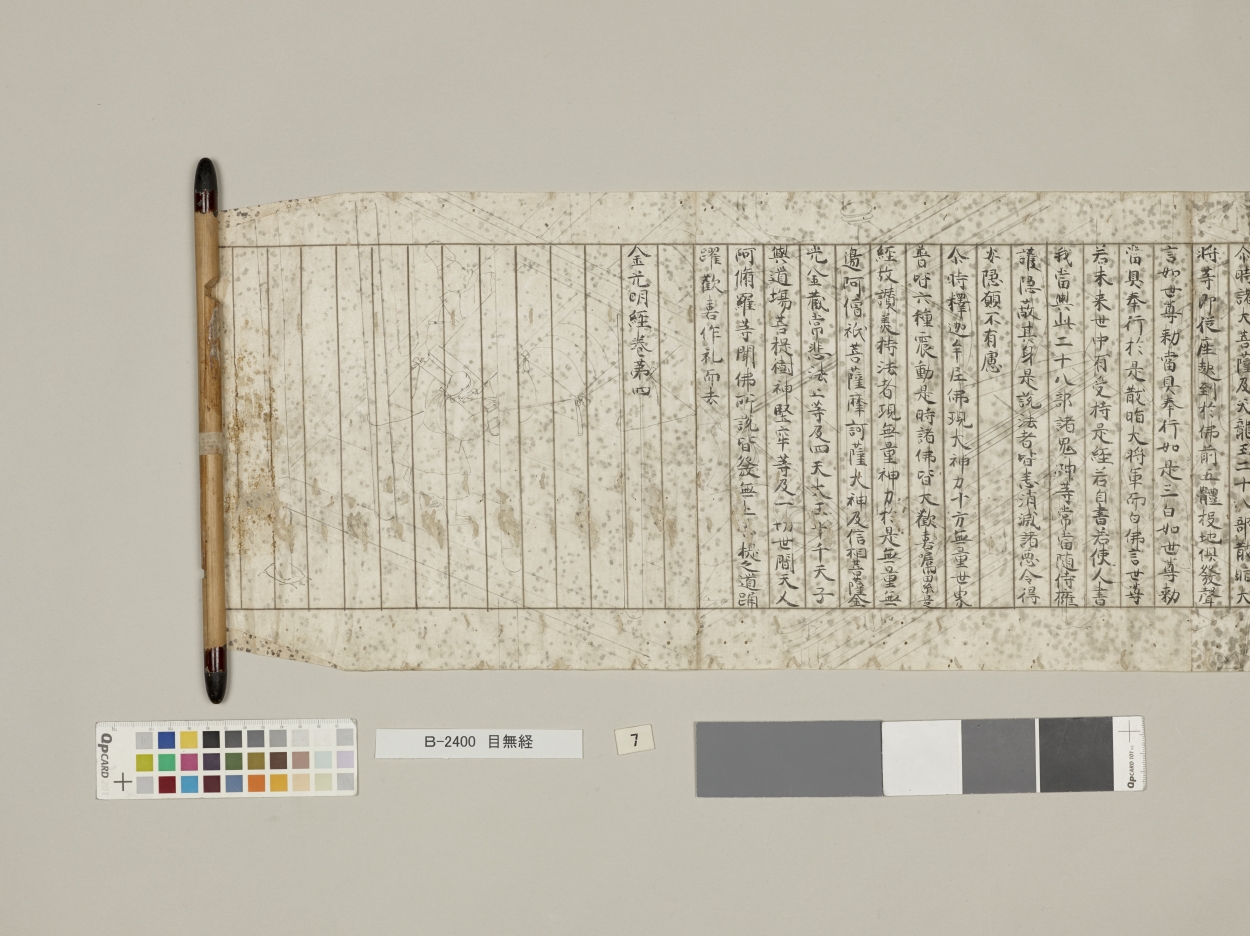 尒時諸大菩薩及天龍王二十八部散脂大
將等即從座起到於佛前五體投地俱發聲
言如世尊勅當具奉行如是三白如世尊勅
當具奉行於是散脂大將軍而白佛言世尊
若未来世中有受持是經若自書若使人書
我當與此二十八部諸鬼神等常當随侍擁
護隠蔽其身是說法者皆悉消滅諸悪令得
安隠願不有慮
尒時釋迦牟尼佛現大神力十方無量世界
普皆六種震動是時諸佛皆大歡喜囑累是
經故讃美持法者現無量神力於是無量無
邊阿僧祇菩薩摩訶薩大神及信相菩薩金
光金蔵常悲法上等及四天大王十千天子
與道場菩提樹神堅牢等及一切世間天人
阿脩羅等聞佛所說皆發無上之道踊
躍歡喜作礼而去
金光明經巻第四
B-2400 目無経
7
QPCARD
QPCARD 101